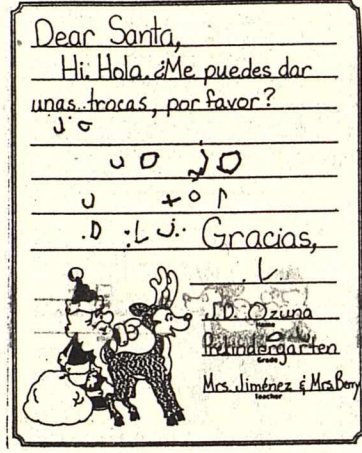 Dear Santa,
Hi. Hola. ¿Me puedes dar
unas trocas, por favor?
Gracias,
J.D. Ozuna
Name
Prekindergarten
Grade
Mrs. Jiménez & Mrs. Berry
Teacher